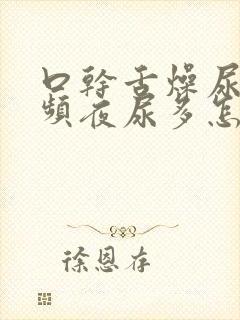 口幹舌燥尿
頻夜尿多怎
徐恩存